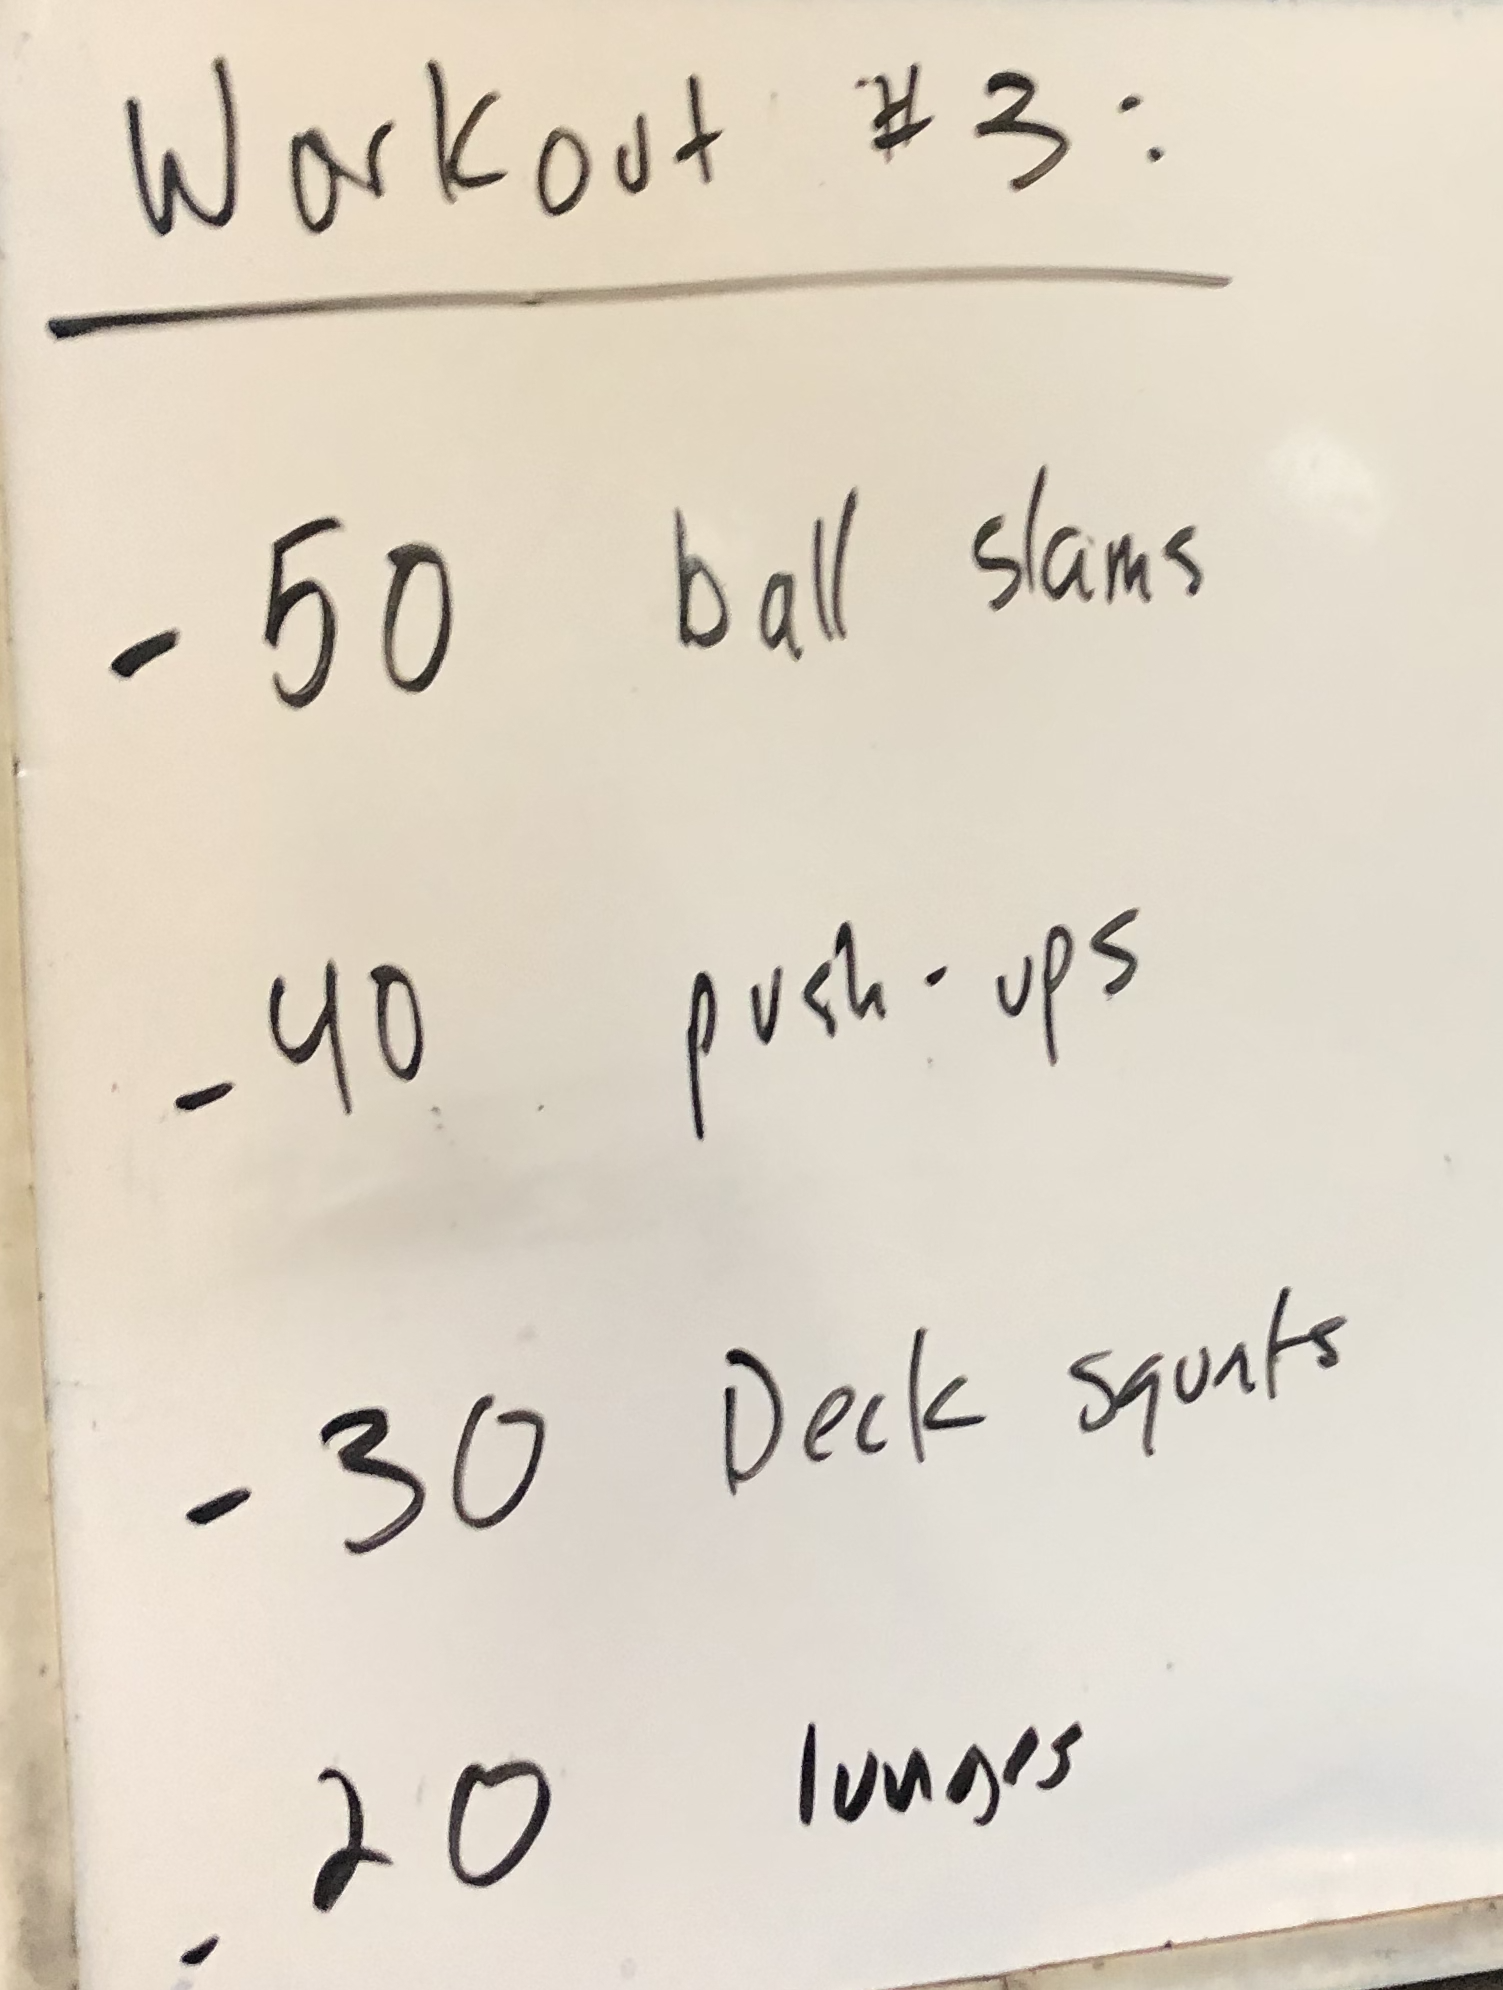 Workout #3:
- 50 ball slams
- 40 push-ups
- 30 Deck squats
- 20 lunges